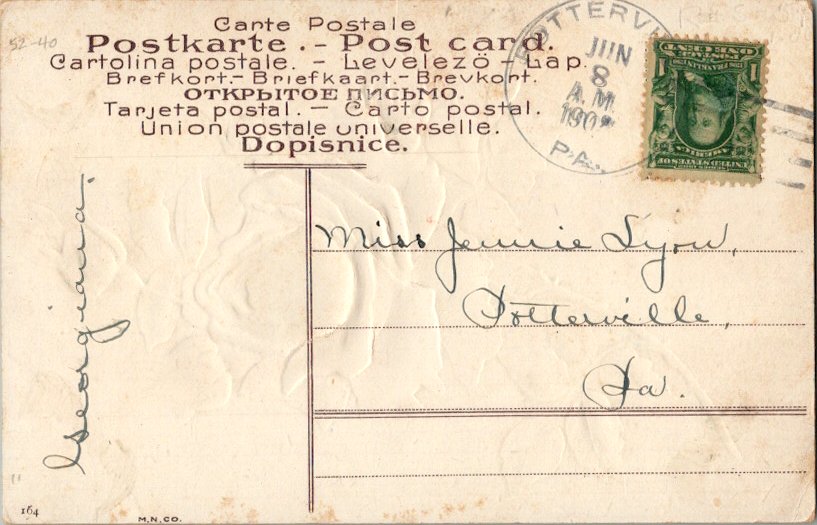 52-40
Carte Postale
Postkarte. - Post card.
Cartolina postale. - Levelező - Lap.
Brefkort. - Briefkaart. - Brevkort.
ОТКРЫТОЕ ПИСЬМО.
Tarjeta postal. - Carto postal.
Union postale universelle.
Dopisnice.
JUN
8
A.M.
PA.
1 POSTAGE 1
ONE CENT
UNITED STATES OF
AMERICA
Miss Jennie Lyon,
Potterville,
Pa.
Georgiana.
164
M.N.CO.